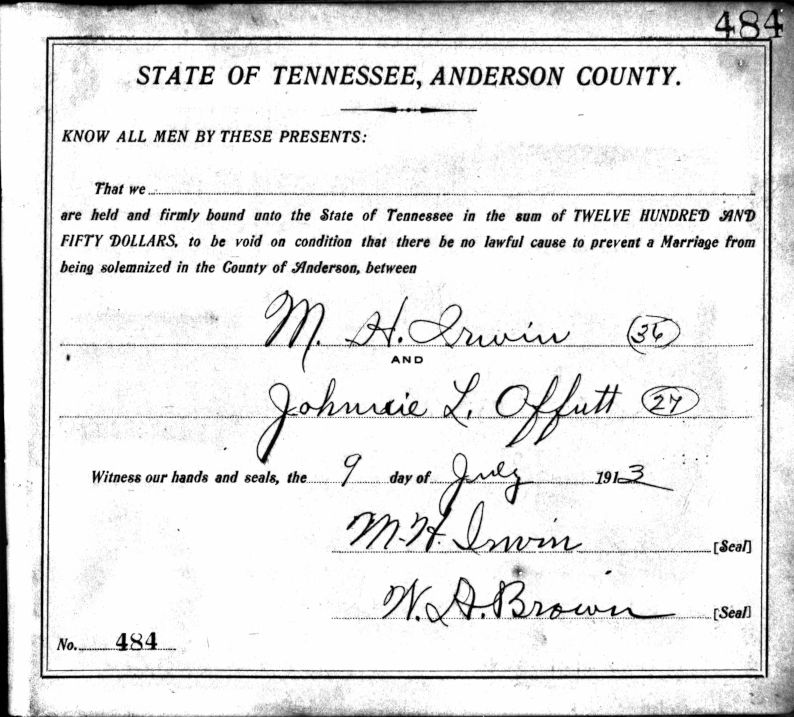 484
STATE OF TENNESSEE, ANDERSON COUNTY.
KNOW ALL MEN BY THESE PRESENTS:
That we
are held and firmly bound unto the State of Tennessee in the sum of TWELVE HUNDRED AND
FIFTY DOLLARS, to be void on condition that there be no lawful cause to prevent a Marriage from
being solemnized in the County of Anderson, between
M. H. Irwin (36)
AND
Johnnie L. Offutt (27)
Witness our hands and seals, the 9 day of July 1913
M. H. Irwin [Seal]
W. A. Brown [Seal]
No. 484